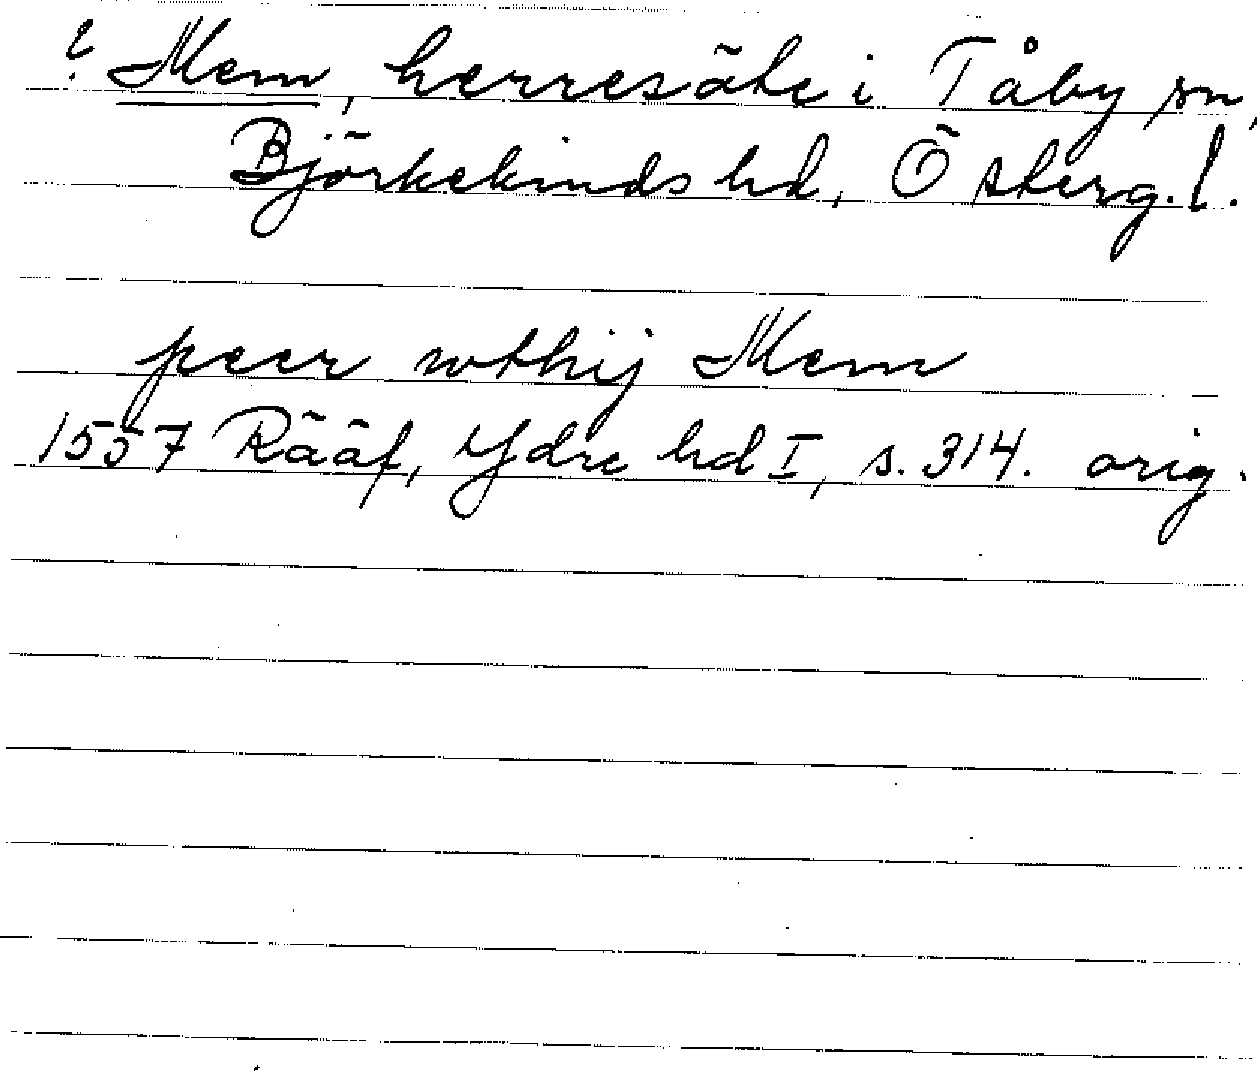 ? Mem, herresäte i Tåby sn,
Björkekinds hd, Österg. l.
peer wthij Mem
1557 Rääf, Ydre hd I, s. 314. orig.